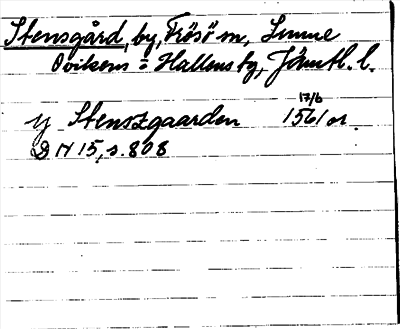 Stensgård, by, Frösö m, Sunne
Ovikens o Hallens tg, Jämtl. l.
17/6
y Stenszgaarden 1561 or.
DN 15, s. 808